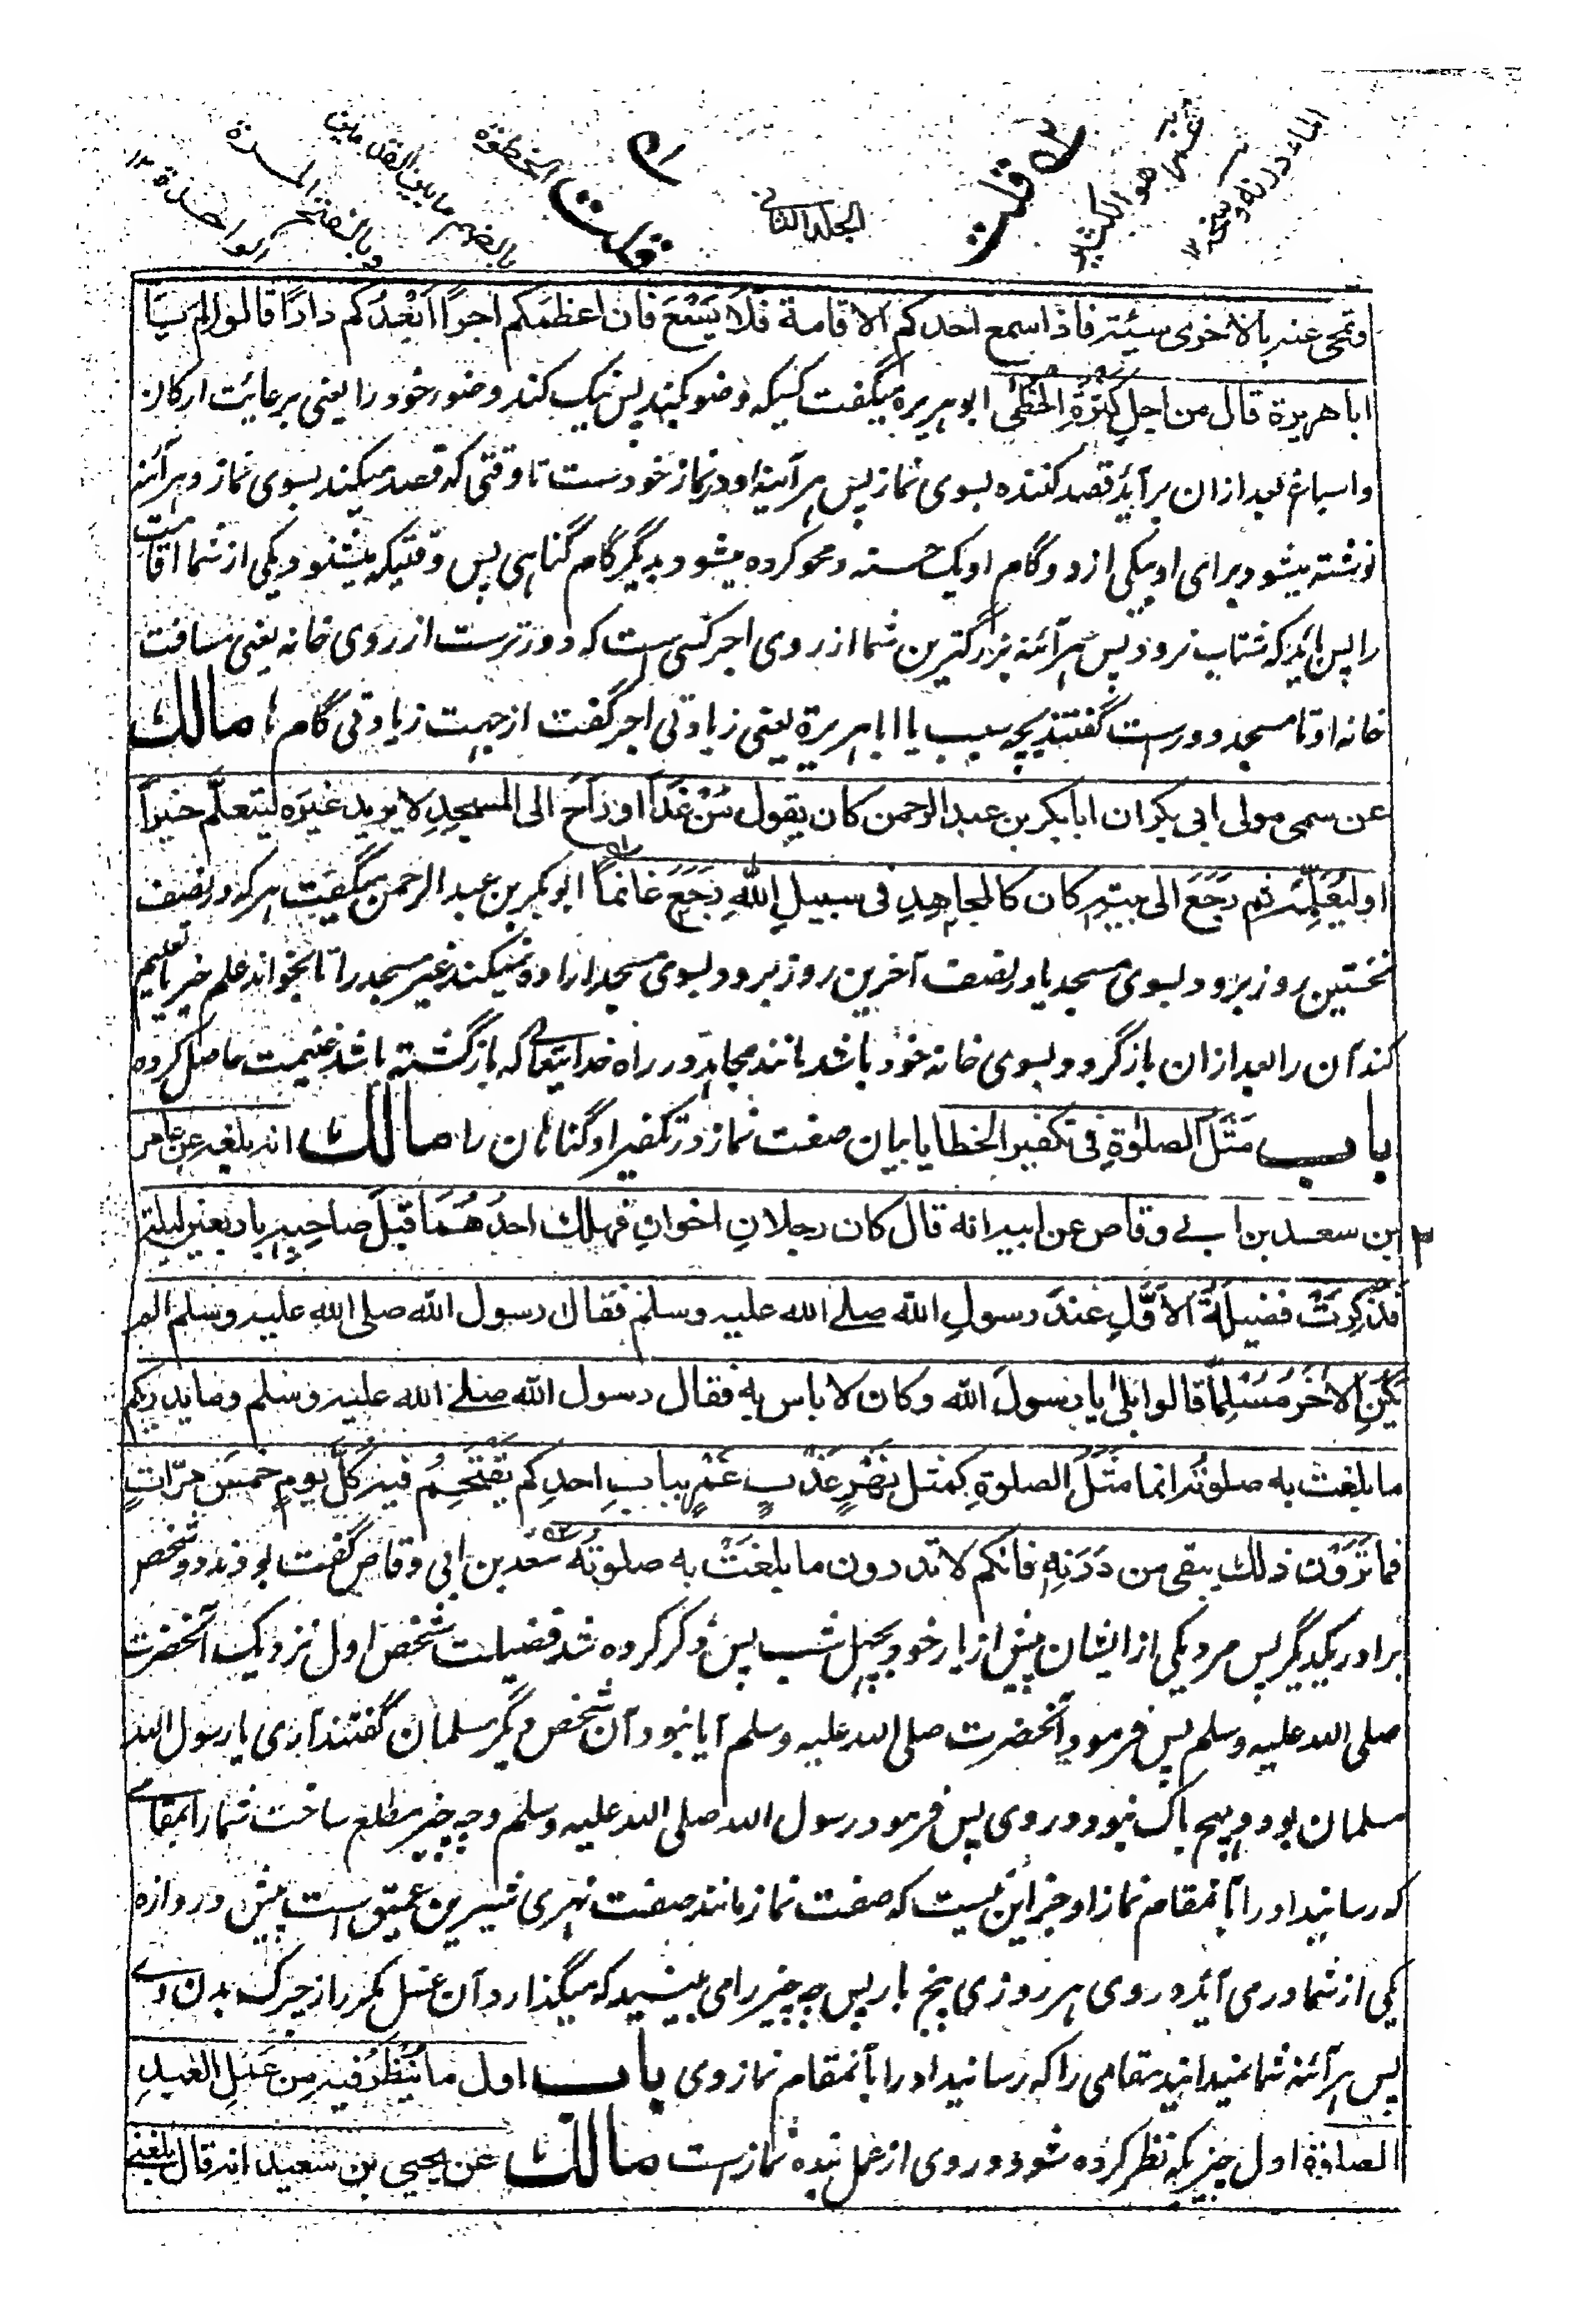 الجلد الثاني
قلت
الخطوة
بالضم ما بين القدمين
وبالفتح المرة
الواحدة ١٢
قلت
غمر هو الكثير
الماء درنه وسخه ١٢
وتمحى عنه بالاخرى سيئة فاذا سمع احدكم الاقامة فَلَا يَسْعَ فان اعظمَكم اجراً اَبْعَدُكم داراً قالوا لم يا
ابا هريرة قال من اجلِ كَثْرَةِ الخُطٰى ابوهريرة میگفت کسیکه وضو کند پس نیک کند وضوء خود را یعنی برعایت ارکان
و اسباغ بعد ازان برآید قصد کننده بسوی نماز پس هرآئینه او در نماز خودست تا وقتی که قصد میکند بسوی نماز و هرآئنه
نوشته میشود برای او بیکی از دو گام او یک حسنه و محو کرده میشود بدیگر گام گناهی پس وقتیکه بشنود یکی از شما اقامت
را پس باید که شتاب نرود پس هرآئنه بزرگترین شما از روی اجر کسی ست که دورترست از روی خانه یعنی مسافت
خانه او تا مسجد دورست گفتند بچه سبب یا ابا هریرة یعنی زیادتی اجر گفت از جهت زیادتی گام ها مالك
عن سمى مولى ابى بكر ان ابا بكر بن عبد الرحمن كان يقول مَنْ غَدَا او رَاحَ الى المسجدِ لا يريد غيرَه ليتعلَّم خيراً
او ليُعَلِّمَه ثم رَجَعَ الى بيتهِ كان كالمجاهِدِ فى سبيلِ اللّٰهِ رَجَعَ غانماً ابوبکر بن عبد الرحمن میگفت هرکه در نصف
نخستین روز برود بسوی مسجد یا در نصف آخرین روز برود بسوی مسجد اراده نمیکند غیر مسجد را تا بخواند علم خیر یا تعلیم
کند آن را بعد ازان بازگردد بسوی خانه خود باشد مانند مجاهد در راه خدایتعالے که بازگشته باشد غنیمت حاصل کرده
باب مَثَلُ الصلوٰةِ فى تكفير الخطايا بیان صفت نماز در تکفیر او گناهان را مالك انه بلغه عن عامر
بن سعد بن ابے وقاص عن ابيه انه قال كان رجلانِ اخوانِ فهلك احدُهُمَا قبلَ صاحِبِهِ باربعين ليلة
فَذُكِرَتْ فضيلَةُ الاَوَّلِ عندَ رسولِ اللّٰه صلے الله عليه وسلم فقال رسول الله صلى الله عليه وسلم الم
يَكُنِ الاٰخَرُ مُسْلِماً قالوا بلىٰ يا رسولَ الله وكان لا باس به فقال رسول الله صلے الله عليه وسلم وما يدريكم
ما بلغت به صلوتُه انما مَثَلُ الصلوةِ كمثل نَهْرٍ عَذْبٍ غَمْرٍ ببابِ احدِكم يَقْتَحِمُ فيه كلَّ يومٍ خمسَ مرّاتٍ
فما تَرَوْنَ ذلك يبقى من دَرَنِهٖ فانكم لا تدرون ما بلغَتْ به صلوتُه سعد بن ابی وقاص گفت بودند دو شخص
برادر یکدیگر پس مرد یکی از ایشان پیش از یار خود بچهل شب پس ذکر کرده شد فضیلت شخص اول نزدیک آنحضرت
صلی الله علیه وسلم پس فرمود آنحضرت صلی الله علیه وسلم آیا نبود آن شخص دیگر مسلمان گفتند آری یا رسول الله
مسلمان بود و هیچ باک نبود در وی پس فرمود رسول الله صلی الله علیه وسلم و چه چیز مطلع ساخت شما را بمقامے
که رسانید او را بآنمقام نماز او جز این نیست که صفت نماز مانند صفت نهری شیرین عمیق است پیش دروازه
یکی از شما در می آید در وی هر روزی پنج بار پس چه چیز را می بینید که میگذارد آن غسل مکرر از چرک بدن وے
پس هرآئنه شما نمیدانید مقامی را که رسانید او را بآنمقام نماز وی باب اول ما يُنْظَرُ فيه من عَمَلِ العبدِ
الصلوة اول چیزیکه نظر کرده شود در وی از عمل بنده نمازست مالك عن يحيى بن سعيد انه قال بلغنى
٣